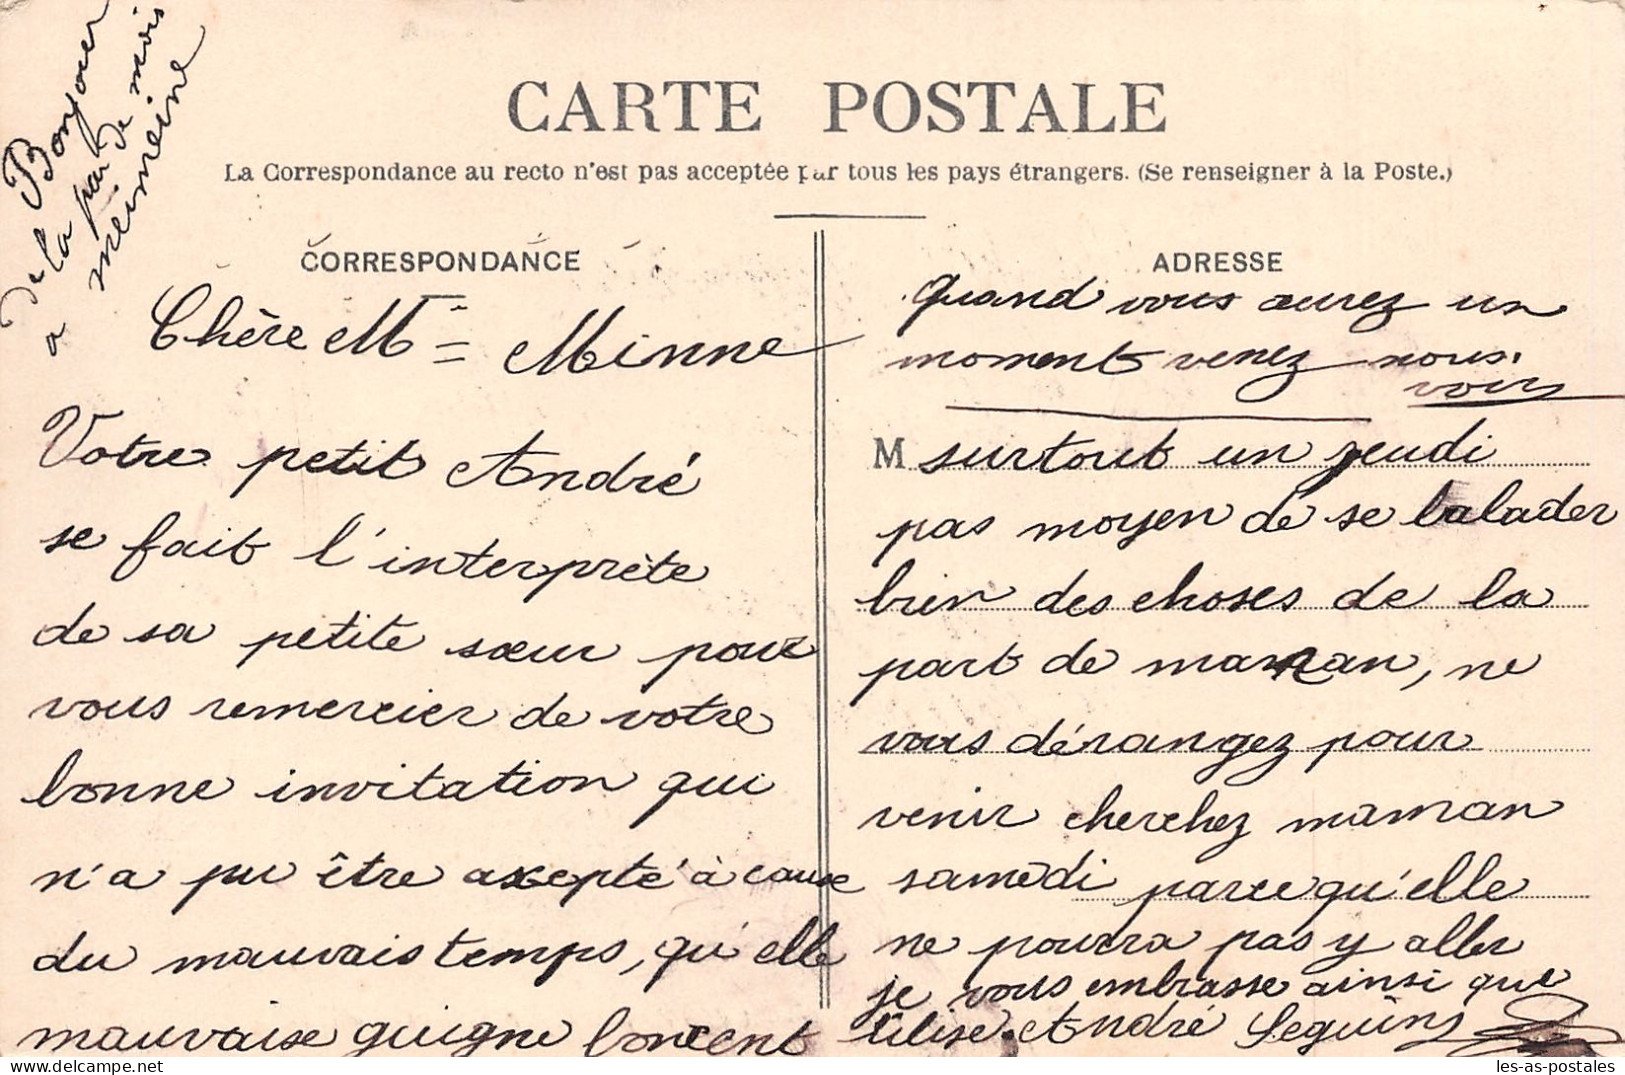 Bonjour
de la par de mois
a meimeine
CARTE POSTALE
La Correspondance au recto n'est pas acceptée par tous les pays étrangers. (Se renseigner à la Poste.)
CORRESPONDANCE
Chère Mme Minne
Votre petit André
se fait l'interprète
de sa petite sœur pour
vous remercier de votre
bonne invitation qui
n'a pu être axepté à cause
du mauvais temps, qu'elle
mauvaise guigne
ADRESSE
Quand vous aurez un
moment venez nous
voirs
M surtout un jeudi
pas moyen de se balader
bien des choses de la
part de maman, ne
vous dérangez pour
venir cherchez maman
samedi parce qu'elle
ne pourra pas y aller
je vous embrasse ainsi que
Élise. André Seguins
les-as-postales